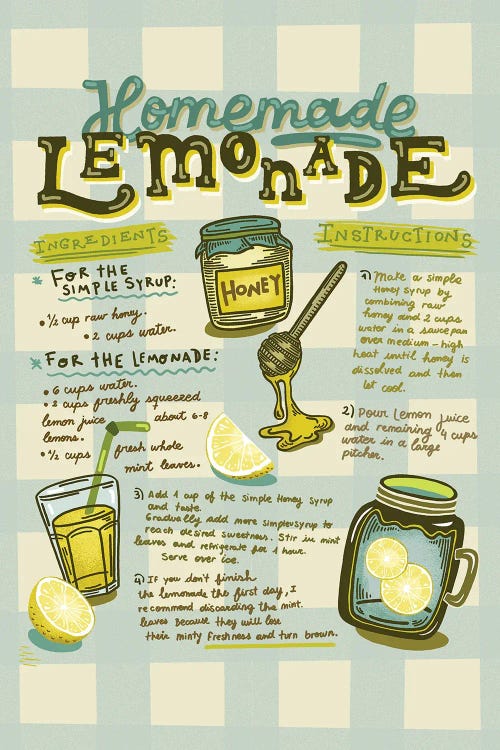 Homemade
LEMONADE
INGREDIENTS
* FOR THE
SIMPLE SYRUP:
• 1/2 cup raw honey.
• 2 cups water.
* FOR THE LEMONADE:
• 6 cups water.
• 2 cups freshly squeezed
lemon juice about 6-8
lemons.
• 1/2 cups fresh whole
mint leaves.
HONEY
INSTRUCTIONS
1) Make a simple
Honey syrup by
combining raw
honey and 2 cups
water in a sauce pan
over medium-high
heat until honey is
dissolved and then
let cool.
2) Pour lemon juice
and remaining 4 cups
water in a large
pitcher.
3) Add 1 cup of the simple Honey syrup
and taste.
Gradually add more simple syrup to
reach desired sweetness. Stir in mint
leaves and refrigerate for 1 hour.
Serve over ice.
4) If you don't finish
the lemonade the first day, I
recommend discarding the mint
leaves Because they will lose
their minty freshness and turn brown.